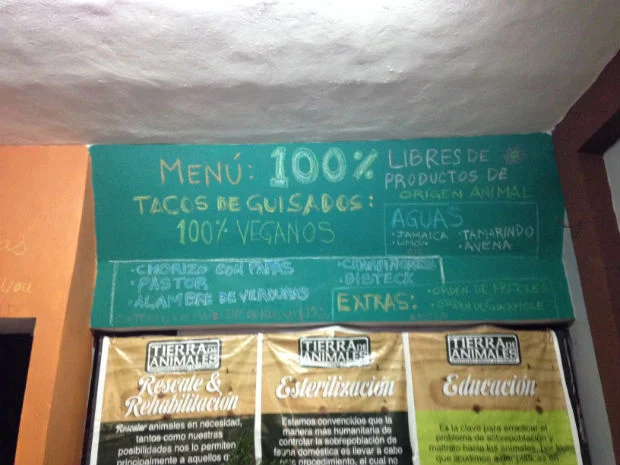 MENÚ: 100%
LIBRES DE
PRODUCTOS DE
ORIGEN ANIMAL
TACOS DE GUISADOS:
100% VEGANOS
AGUAS
• JAMAICA • TAMARINDO
• LIMÓN • AVENA
• CHORIZO CON PAPAS
• PASTOR
• ALAMBRE DE VERDURAS
• CHAMPIÑONES
• BISTECK
EXTRAS:
• ORDEN DE FRIJOLES
• ORDEN DE GUACAMOLE
TIERRA DE
ANIMALES
Rescate &
Rehabilitación
Rescatar animales en necesidad,
tantos como nuestras
posibilidades nos lo permiten
principalmente a aquellos q
TIERRA DE
ANIMALES
Esterilización
Estamos convencidos que la
manera más humanitaria de
controlar la sobrepoblación de
fauna doméstica es llevar a cabo
procedimiento, el cual no
TIERRA DE
ANIMALES
Educación
Es la clave para erradicar el
problema de sobrepoblación y
maltrato hacia los animales,